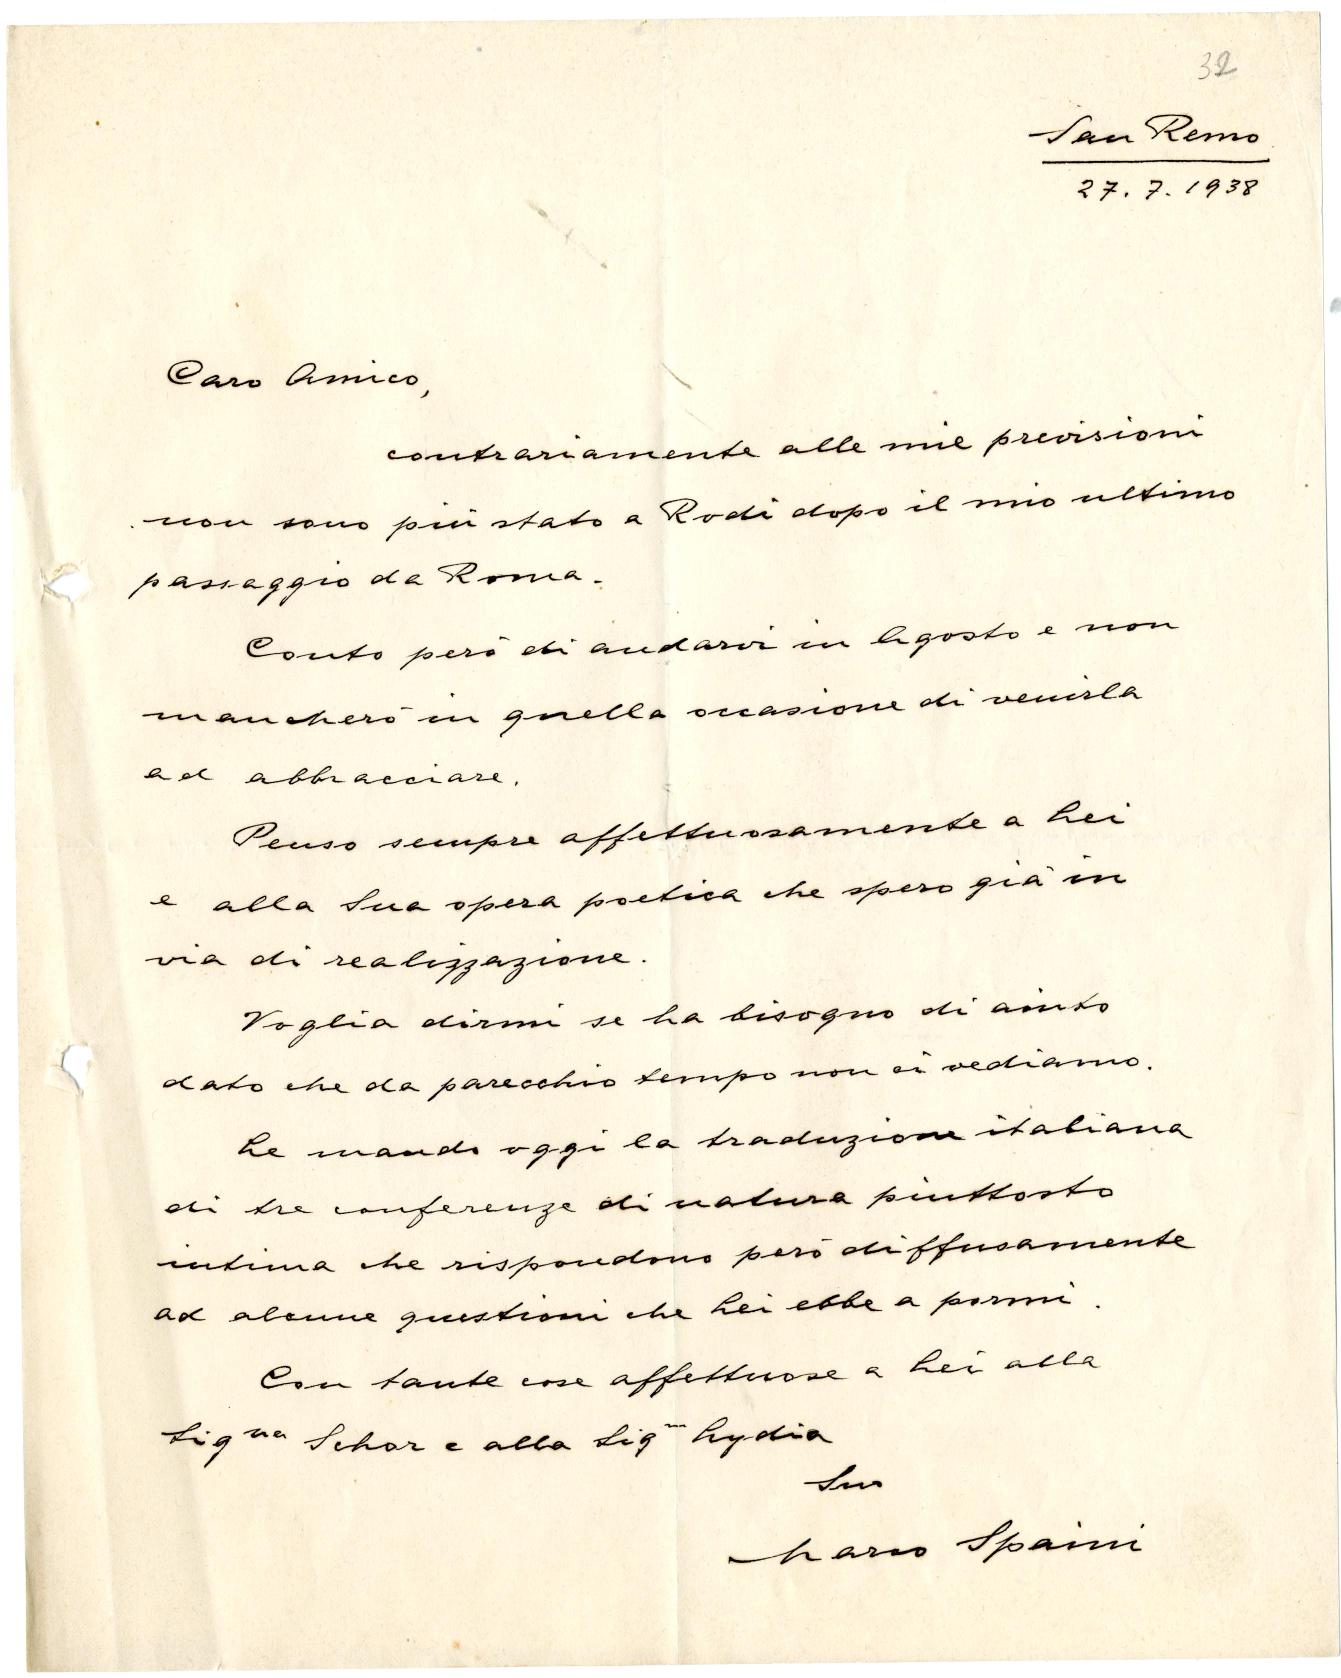 32
San Remo
27. 7. 1938
Caro Amico,
contrariamente alle mie previsioni
non sono più stato a Rodi dopo il mio ultimo
passaggio da Roma.
Conto però di andarvi in Agosto e non
mancherò in quella occasione di venirla
ad abbracciare.
Penso sempre affettuosamente a Lei
e alla Sua opera poetica che spero già in
via di realizzazione.
Voglia dirmi se ha bisogno di aiuto
dato che da parecchio tempo non ci vediamo.
Le mando oggi la traduzione italiana
di tre conferenze di natura piuttosto
intima che rispondono però diffusamente
ad alcune questioni che Lei ebbe a pormi.
Con tante cose affettuose a Lei alla
Signa Schor e alla Signa Lydia
Suo
Mario Spaini